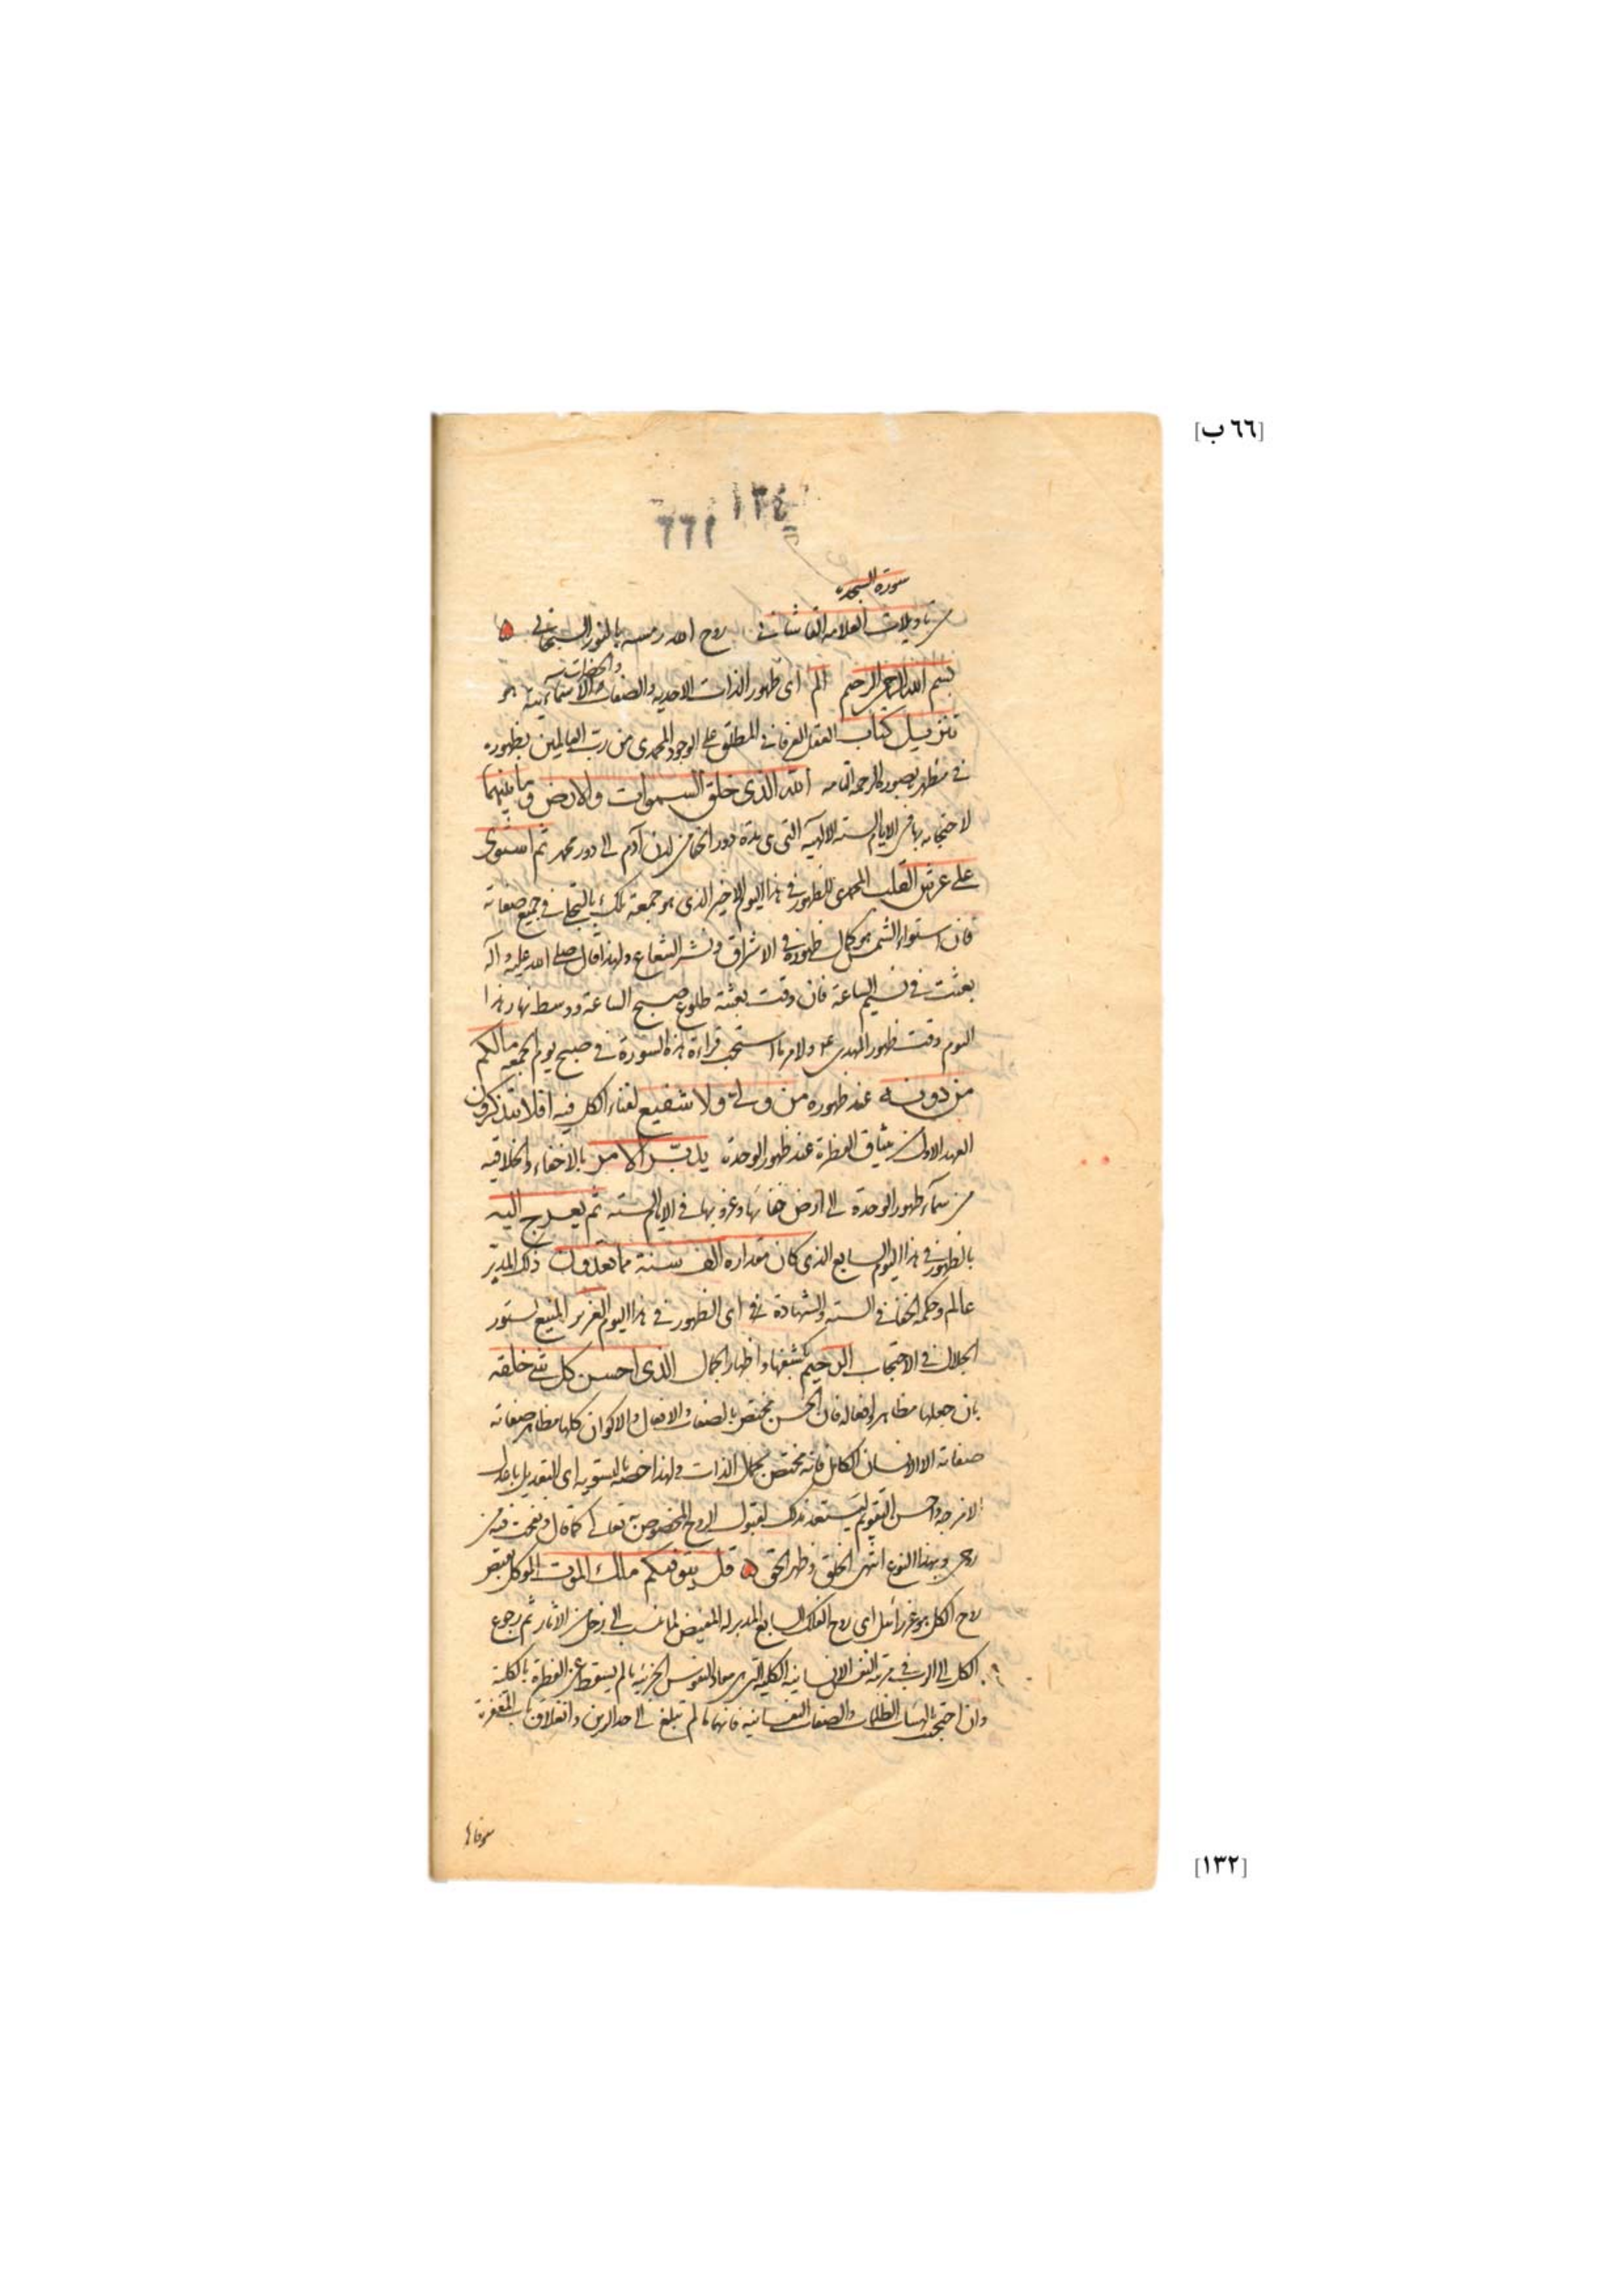 [٦٦ ب]
١٣٤
٦٦١
سورة السجدة
من تاويلات العلامة القاشاني روح الله رمسه بالنور السبحاني
والحضرات
بسم الله الرحمن الرحيم الم اى ظهور الذات الاحدية والصفات والاسمائية هو
تنزيل كتاب العقل الفرقاني المطلق على الوجود المحمدى من رب العالمين بظهوره
في مظهره بصورة الرحمة التامة الله الذى خلق السموات والارض وما بينهما
لاحتجابه بها في الايام الستة الالهية التى هى مدة دور الخفا من لدن آدم الى دور محمد ثم استوى
على عرش القلب المحمدى للظهور في هذا اليوم الاخير الذى هو جمعة تلك بالتجلى في جميع صفاته
فان استواء الشمس هو كمال ظهورها في الاشراق ونشر الشعاع ولهذا قال صلى الله عليه وآله
بعثت في نسيم الساعة فان وقت بعثته طلوع صبح الساعة ووسط نهار هذا
اليوم وقت ظهور المهدى ع ولامر ما استحب قراءة هذه السورة في صبح يوم الجمعة مالكم
من دونه عند ظهوره من ولى ولا شفيع لفناء الكل فيه افلا تتذكرون
العهد الاول من ميثاق الفطرة عند ظهور الوحدة يدبر الامر بالاخفاء والخلاقية
من سماء ظهور الوحدة الى ارض خفائها وغروبها في الايام الستة ثم يعرج اليه
بالظهور في هذا اليوم السابع الذى كان مقداره الف سنة مما تعدون ذلك المدبر
عالم وحكمة الخفا في الستة والشهادة في اى الظهور في هذا اليوم العزيز المنيع بستور
الجلال في الاحتجاب الرحيم بكشفها واظهار الجمال الذى احسن كل شئ خلقه
بان جعلها مظاهر افعاله فان الحسن مختص بالصفات والافعال والاكوان كلها مظاهر صفاته
صفاته الا الانسان الكامل فانه مختص بجمال الذات ولهذا خصه بالتسوية اى التعديل باعدل
الامزجة واحسن التقويم ليستعد بذلك لقبول الروح المخصوص به تعالى كما قال ونفخت فيه من
روحى وبهذا النوع انتهى الخلق وظهر الحق قل يتوفيكم ملك الموت الموكل بقبض
روح الكل هو عزرائيل اى روح الفلك السابع المدبر له المفيض لما ينسب الى زحل من الآثار ثم رجوع
الكل الى الرب في مرتبة النفس الانسانية الكلية التى هى معاد النفوس الجزئية ما لم يسقط عن الفطرة بالكلية
وان احتجبت بهيئات الظلمات والصفات النفسانية فانها ما لم تبلغ الى حد الرين وانغلاق باب المغفرة
[١٣٢]